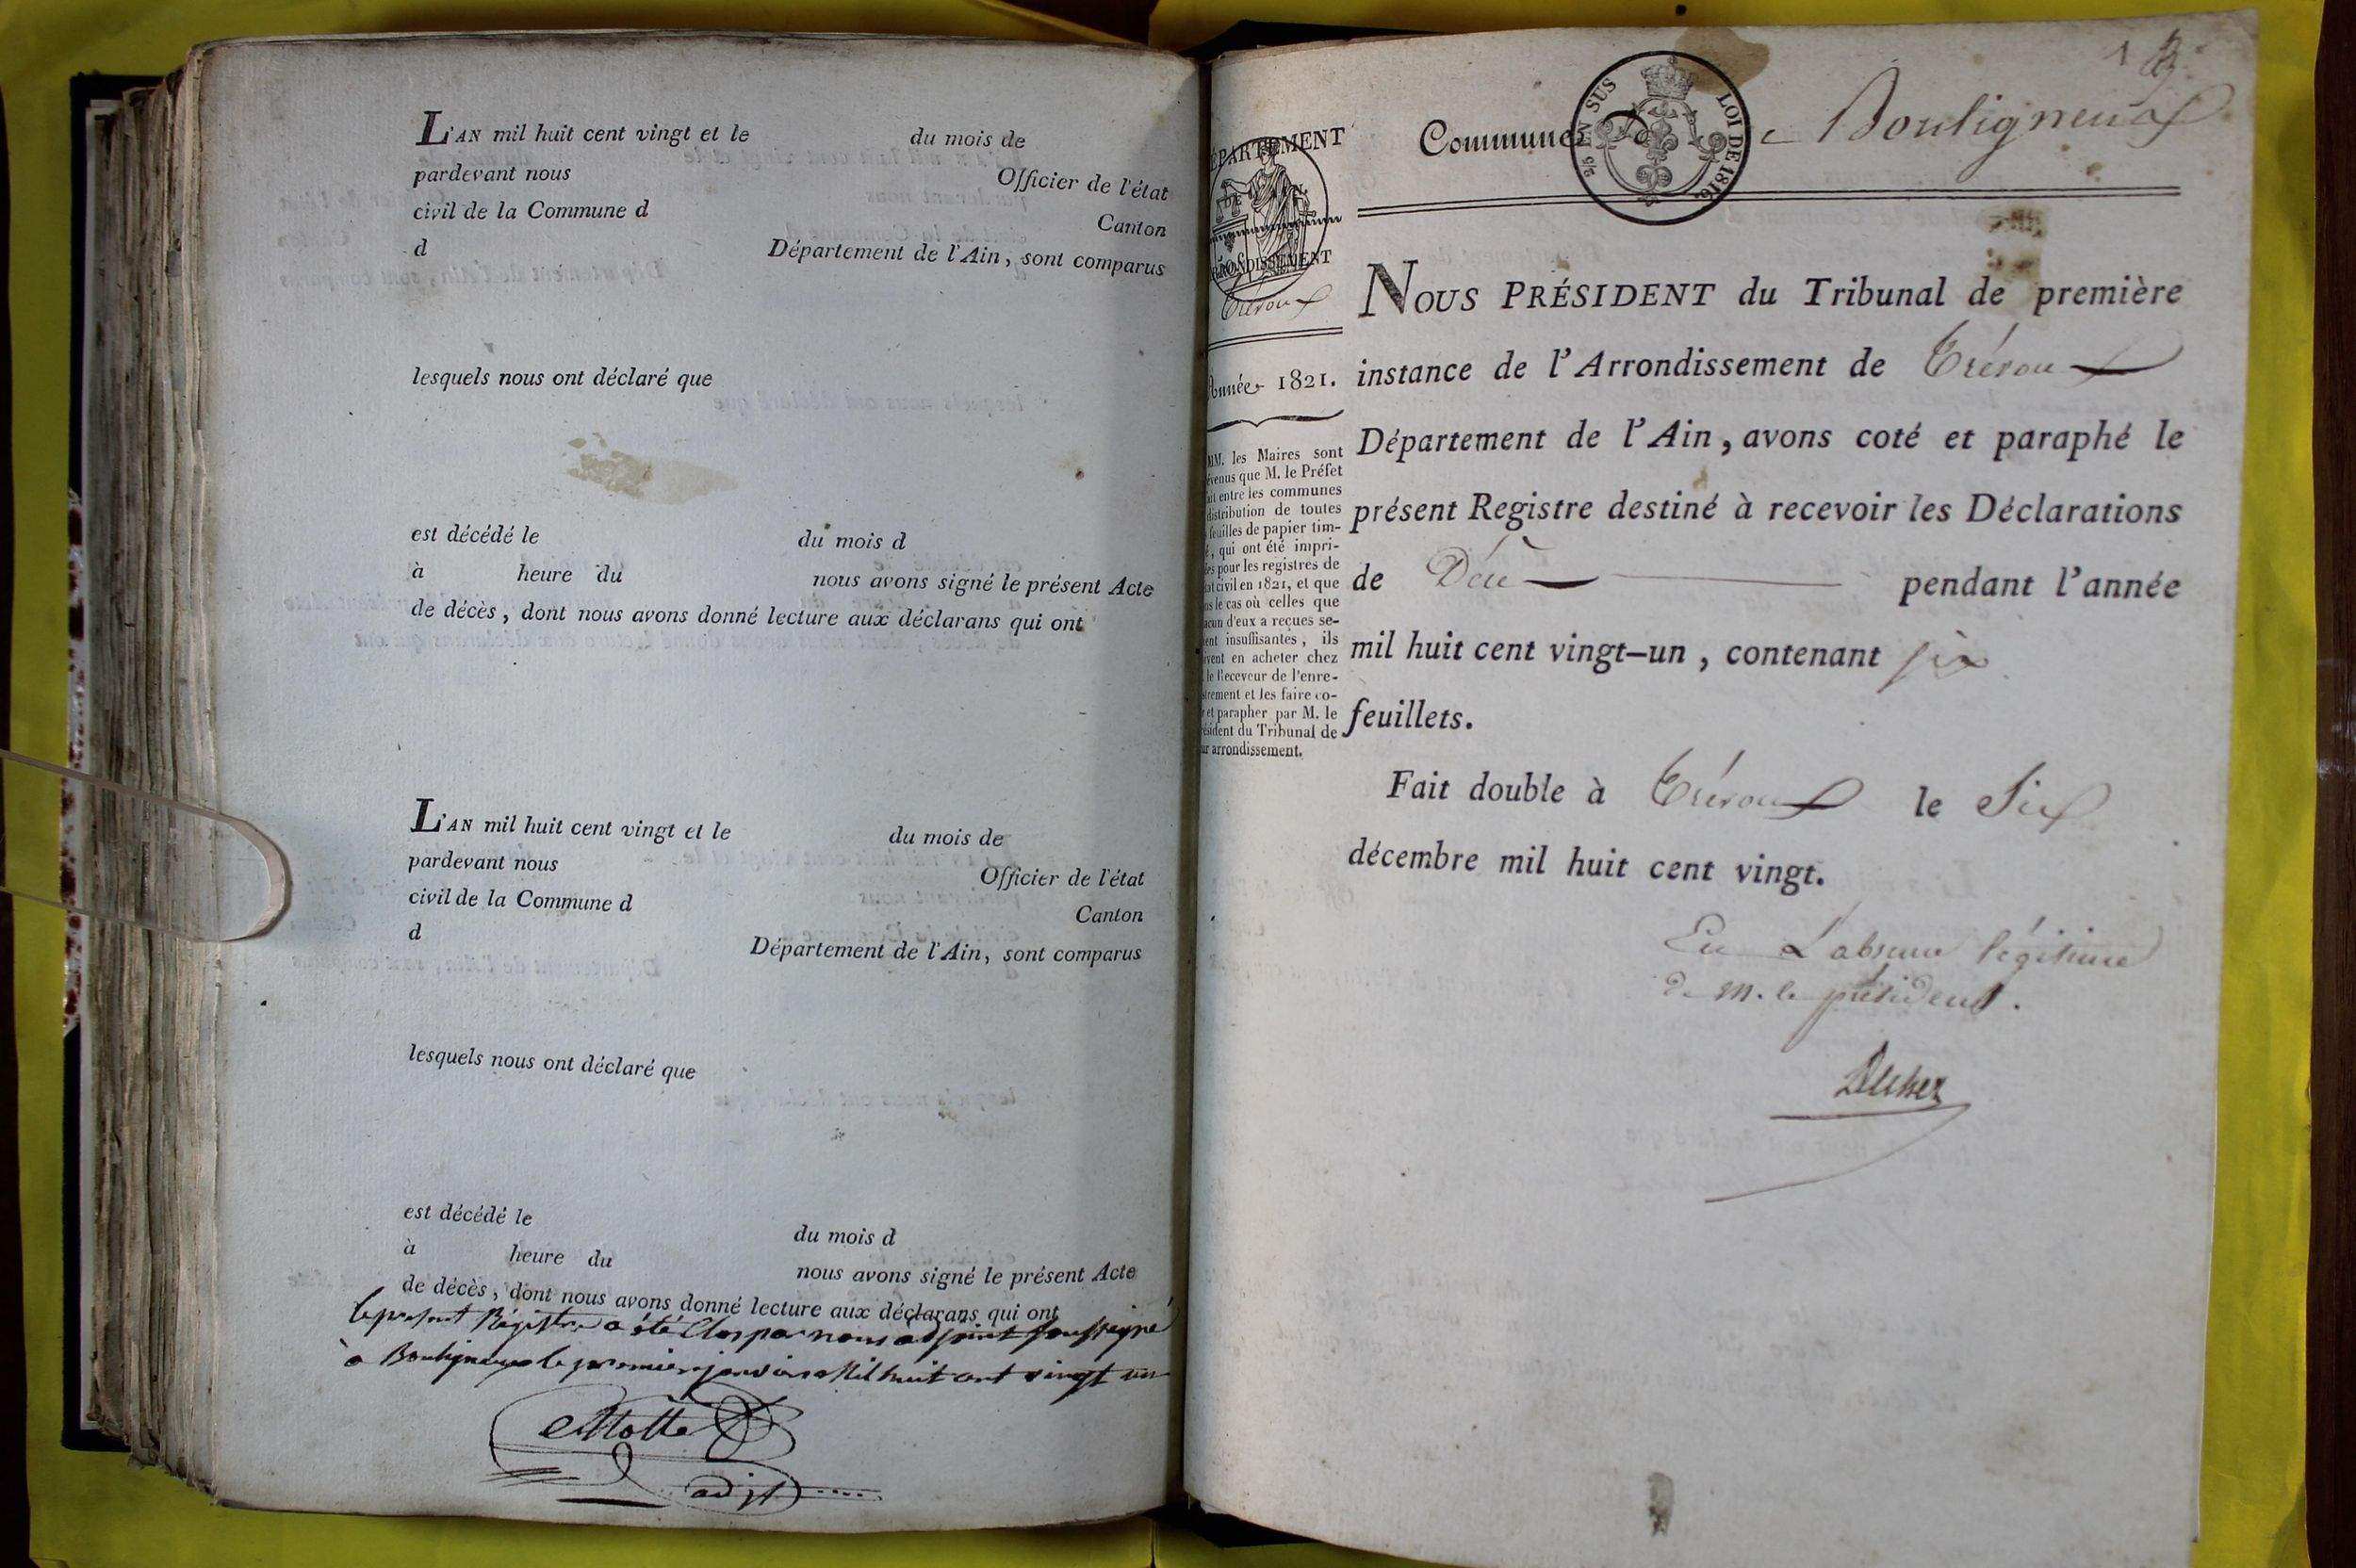 L'AN mil huit cent vingt et le du mois de
pardevant nous Officier de l'état
civil de la Commune d Canton
d Département de l'Ain, sont comparus
lesquels nous ont déclaré que
est décédé le du mois d
à heure du nous avons signé le présent Acte
de décès, dont nous avons donné lecture aux déclarans qui ont
L'AN mil huit cent vingt et le du mois de
pardevant nous Officier de l'état
civil de la Commune d Canton
d Département de l'Ain, sont comparus
lesquels nous ont déclaré que
est décédé le du mois d
à heure du nous avons signé le présent Acte
de décès, dont nous avons donné lecture aux déclarans qui ont
le present Régistre a été Clos par nous adjoint soussigné
à Bouligneux le premier janvier Mil huit cent vingt un
adjt
DÉPARTEMENT
DE L'AIN.
ARRONDISSEMENT
Trévoux
Année 1821.
MM. les Maires sont
prévenus que M. le Préfet
fait entre les communes
distribution de toutes
feuilles de papier tim-
bré, qui ont été impri-
mées pour les registres de
l'état civil en 1821, et que
dans le cas où celles que
chacun d'eux a reçues se-
roient insuffisantes, ils
doivent en acheter chez
le Receveur de l'enre-
gistrement et les faire co-
ter et parapher par M. le
Président du Tribunal de
leur arrondissement.
Commune de Bouligneux
EN SUS LOI DE 1816
NOUS PRÉSIDENT du Tribunal de première
instance de l'Arrondissement de Trévoux
Département de l'Ain, avons coté et paraphé le
présent Registre destiné à recevoir les Déclarations
de Décè pendant l'année
mil huit cent vingt-un, contenant six
feuillets.
Fait double à Trévoux le Six
décembre mil huit cent vingt.
En L'absence légitime
de M. le président.